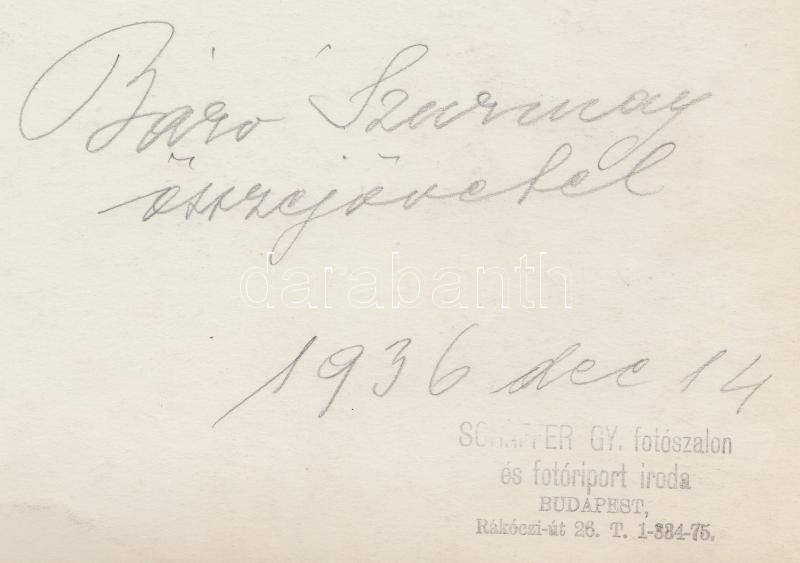 Báró Szurmay
összejövetel
darabanth
1936 dec 14
GY. fotószalon
és fotóriport iroda
BUDAPEST,
Rákóczi-út 26. T. 1-384-75.